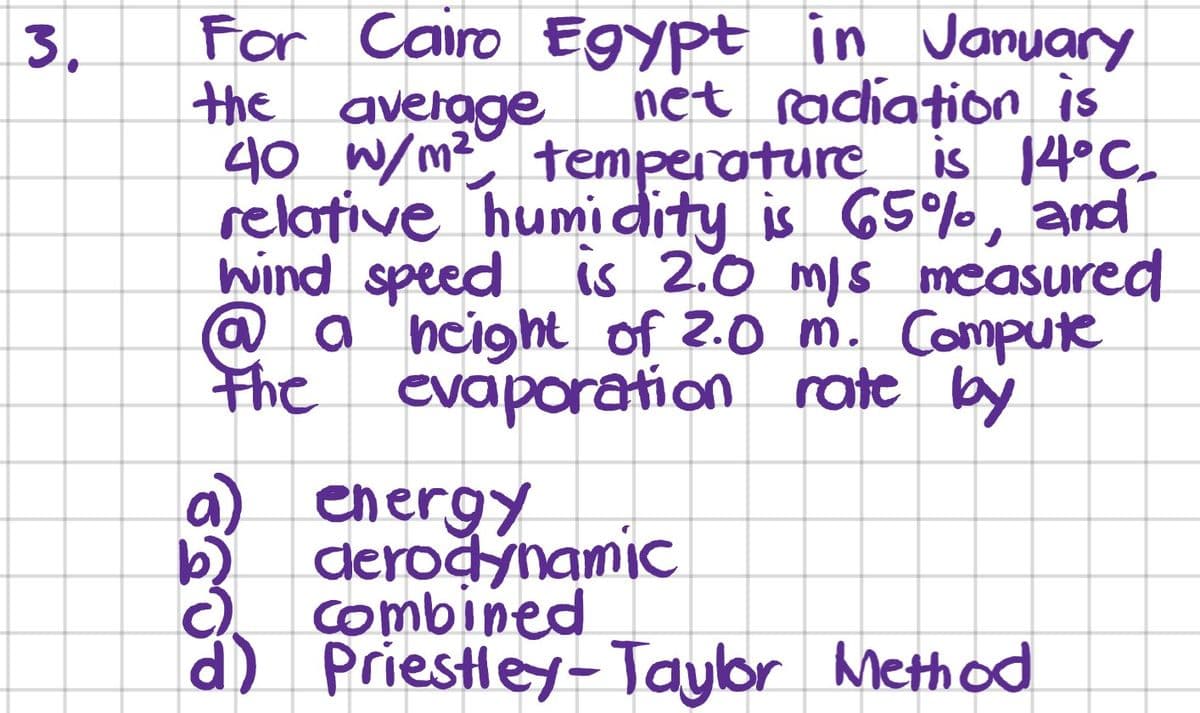 3. For Cairo Egypt in January
the average net radiation is
40 W/m², temperature is 14°C,
relative humidity is 65%, and
wind speed is 2.0 m/s measured
@ a height of 2.0 m. Compute
the evaporation rate by
a) energy
b) aerodynamic
c) combined
d) Priestley-Taylor Method